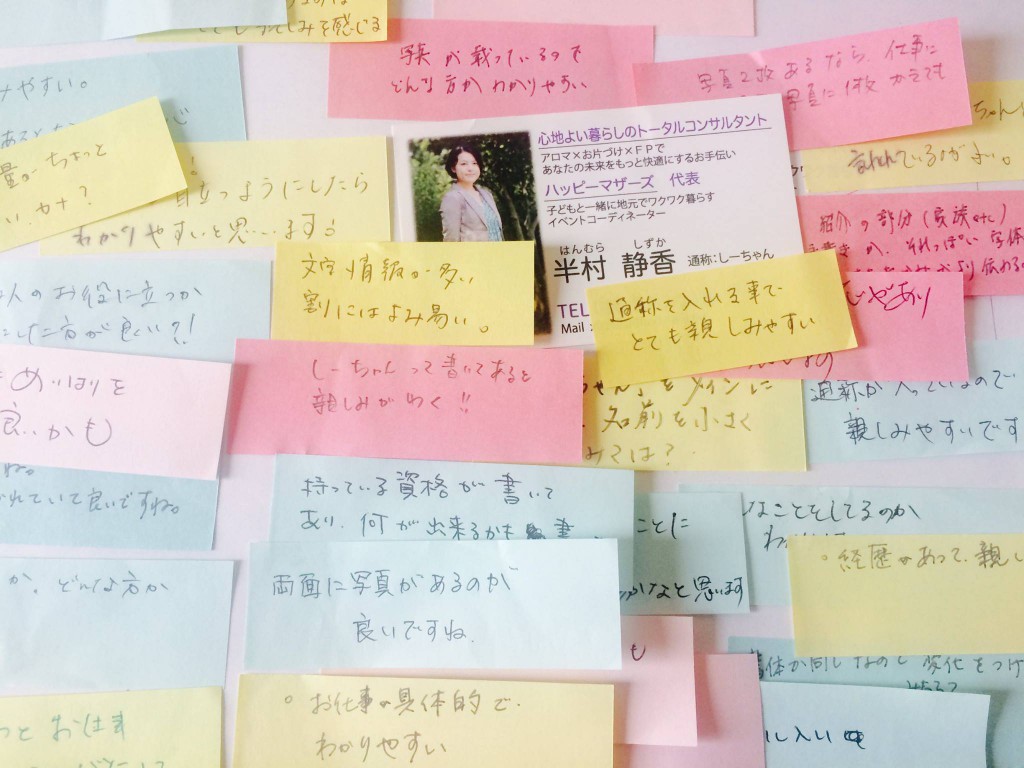 しみを感じる
写真が載っているので
どんな方かわかりやすい
写真2枚あるなら、仕事に
写真に1枚かえても
みやすい。
量がちょっと
目立つようにしたら
わかりやすいと思います!
心地よい暮らしのトータルコンサルタント
アロマ×お片づけ×FPで
あなたの未来をもっと快適にするお手伝い
ハッピーマザーズ 代表
子どもと一緒に地元でワクワク暮らす
イベントコーディネーター
はんむら しずか
半村 静香 通称:しーちゃん
TEL
Mail:
紹介の部分(家族etc)
文字情報が多い
割にはよみ易い。
通称を入れる事で
とても親しみやすい
人のお役に立つか
した方が良い?!
しーちゃんって書いてあると
親しみがわく!!
めいはりを
良いかも
ちゃん」をメインに
名前を小さく
ては?
通称が入っているので
親しみやすいです
れていて良いですね。
持っている資格が書いて
あり、何が出来るかも 書
ことに
かなと思います
なことをしてるのか
わ
。経歴があって、親し
か、どんな方か
両面に写真があるのが
良いですね。
も
体が同じなので変化をつけ
。お仕事が具体的で、
わかりやすい
っとお仕事
に入い